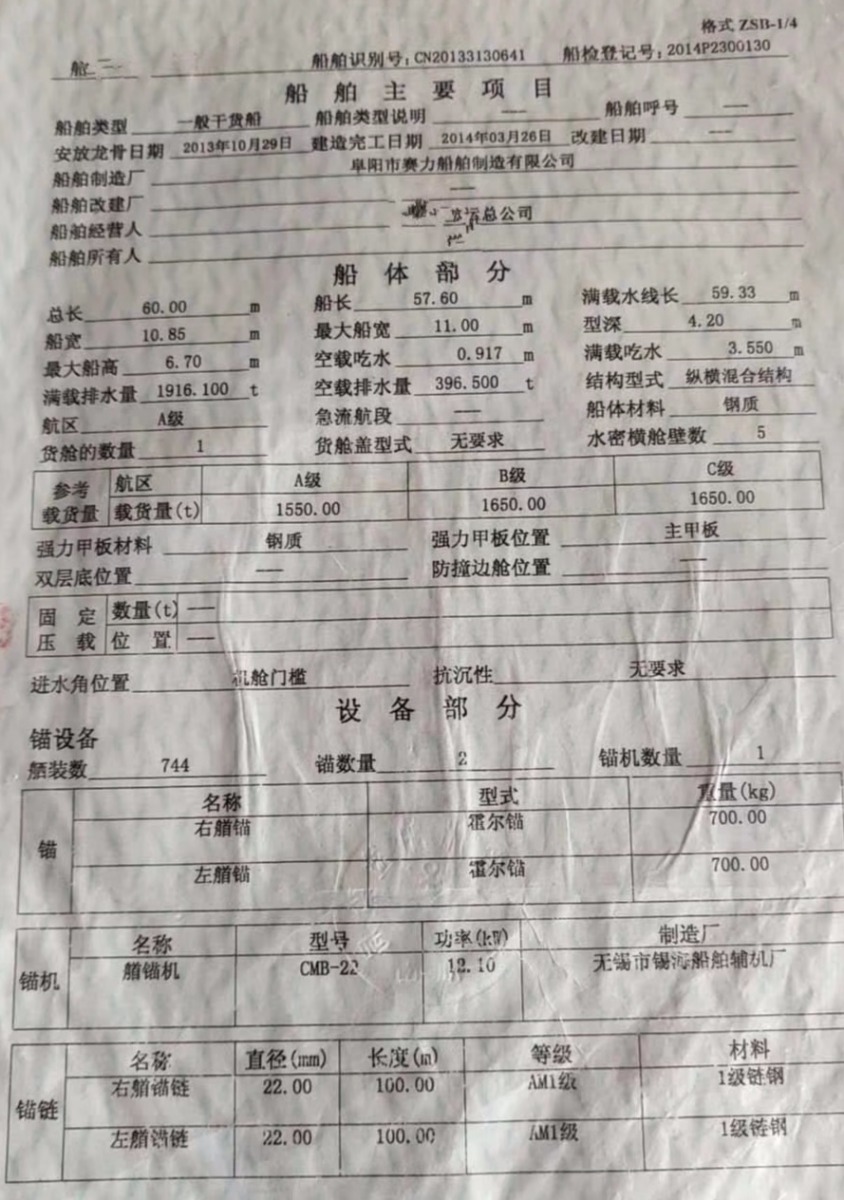 格式 ZSB-1/4
船舶识别号:CN20133130641 船检登记号:2014P2300130
船舶主要项目
船舶类型 一般干货船 船舶类型说明 --- 船舶呼号 ---
安放龙骨日期 2013年10月29日 建造完工日期 2014年03月26日 改建日期 ---
船舶制造厂 阜阳市赛力船舶制造有限公司
船舶改建厂 ---
船舶经营人 总公司
船舶所有人
船体部分
总长 60.00 m 船长 57.60 m 满载水线长 59.33 m
船宽 10.85 m 最大船宽 11.00 m 型深 4.20 m
最大船高 6.70 m 空载吃水 0.917 m 满载吃水 3.550 m
满载排水量 1916.100 t 空载排水量 396.500 t 结构型式 纵横混合结构
航区 A级 急流航段 --- 船体材料 钢质
货舱的数量 1 货舱盖型式 无要求 水密横舱壁数 5
参考载货量 航区 A级 B级 C级
载货量(t) 1550.00 1650.00 1650.00
强力甲板材料 钢质 强力甲板位置 主甲板
双层底位置 --- 防撞边舱位置 ---
固定压载 数量(t) ---
位置 ---
进水角位置 机舱门槛 抗沉性 无要求
设备部分
锚设备
舾装数 744 锚数量 2 锚机数量 1
锚 名称 型式 重量(kg)
右艏锚 霍尔锚 700.00
左艏锚 霍尔锚 700.00
锚机 名称 型号 功率(kW) 制造厂
艏锚机 CMB-22 12.10 无锡市锡海船舶辅机厂
锚链 名称 直径(mm) 长度(m) 等级 材料
右艏锚链 22.00 100.00 AM1级 1级链钢
左艏锚链 22.00 100.00 AM1级 1级链钢